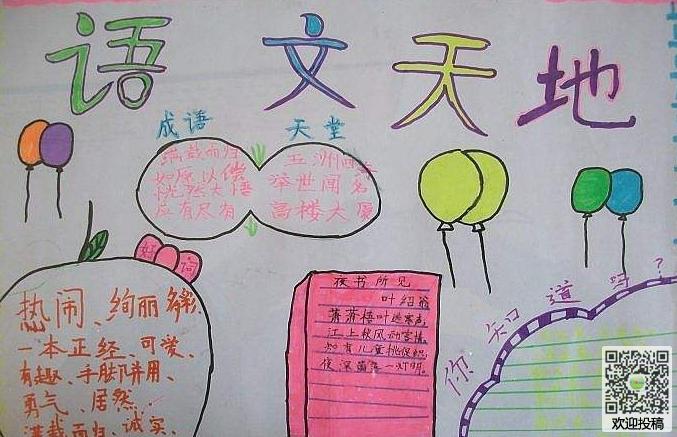 语文天地
成语 天堂
满载而归 五洲四海
如愿以偿 举世闻名
恍然大悟 高楼大厦
应有尽有
好词
热闹、绚丽
一本正经、可爱、
有趣、手脚并用、
勇气、居然、
满载而归、诚实、
夜书所见
叶绍翁
萧萧梧叶送寒声
江上秋风动客情
知有儿童挑促织
夜深篱落一灯明。
你知道吗?
欢迎投稿